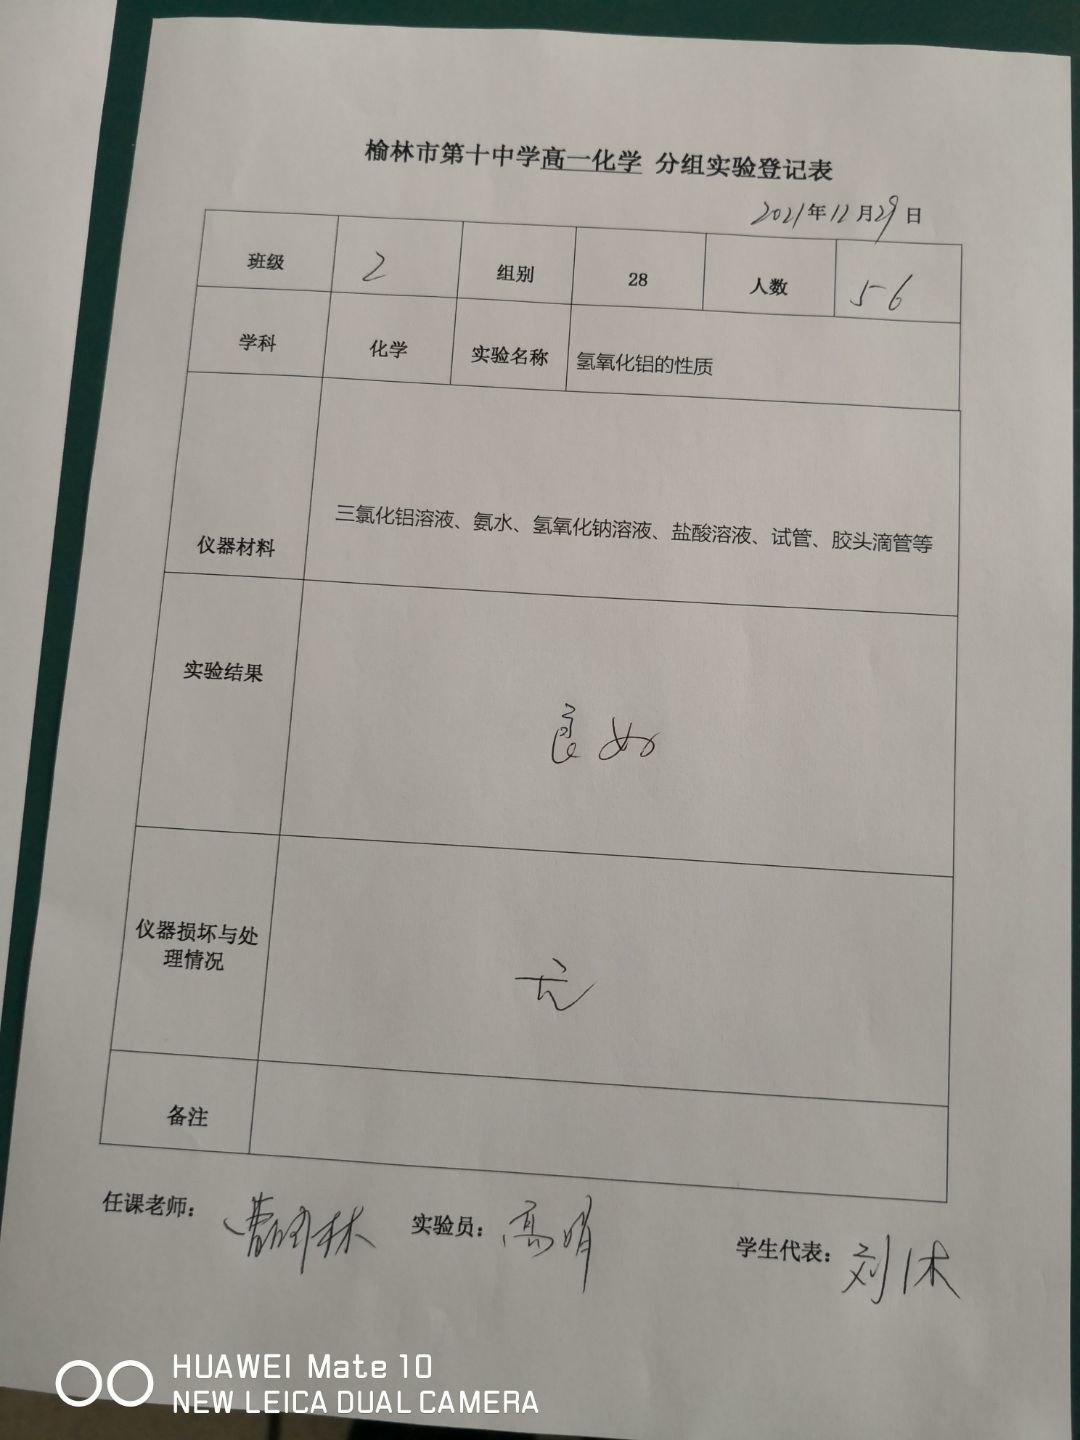 榆林市第十中学高一化学 分组实验登记表
2021年12月29日
班级 2 组别 28 人数 56
学科 化学 实验名称 氢氧化铝的性质
仪器材料 三氯化铝溶液、氨水、氢氧化钠溶液、盐酸溶液、试管、胶头滴管等
实验结果 良好
仪器损坏与处
理情况 无
备注
任课老师： 实验员：高娟 学生代表：刘休
HUAWEI Mate 10
NEW LEICA DUAL CAMERA